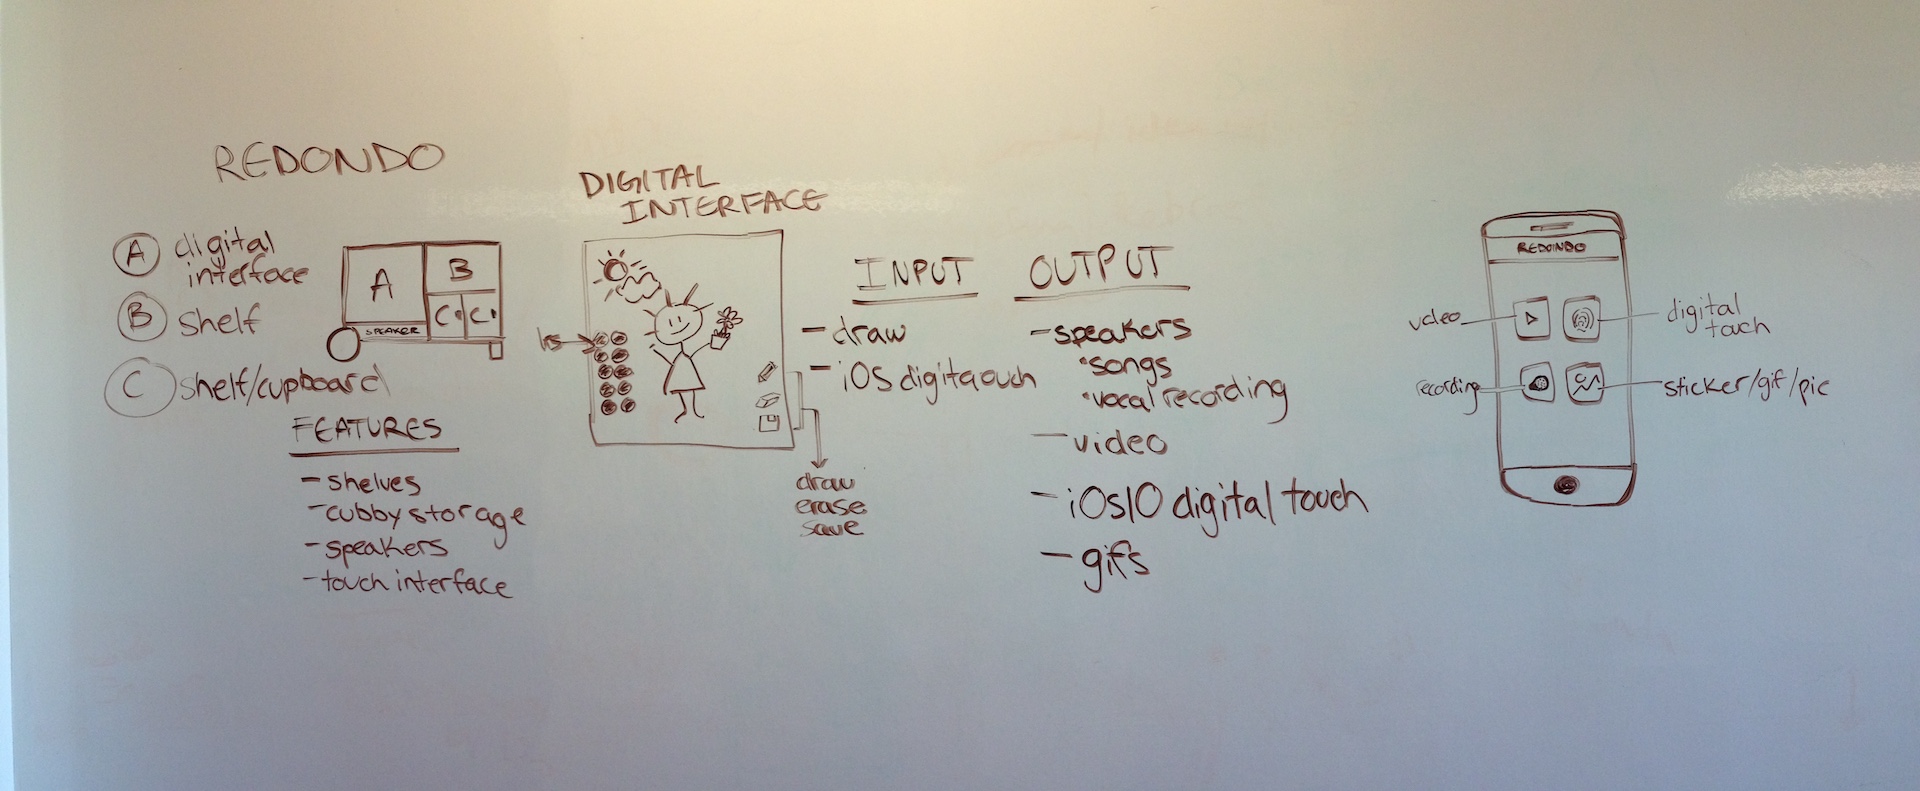 REDONDO
A digital
interface
B shelf
C shelf/cupboard
A
B
C C
SPEAKER
FEATURES
- shelves
- cubby storage
- speakers
- touch interface
DIGITAL
INTERFACE
draw
erase
save
INPUT
- draw
- iOs digitaouch
OUTPUT
- speakers
• songs
• vocal recording
- video
- iOs10 digital touch
- gifs
REDONDO
video
digital
touch
recording
sticker/gif/pic